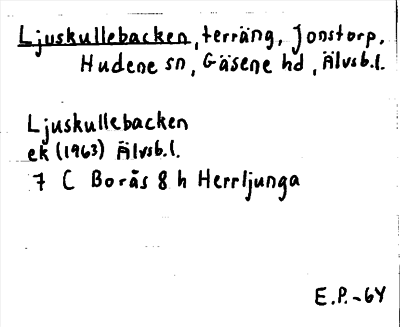 Ljuskullebacken, terräng, Jonstorp,
Hudene sn, Gäsene hd, Älvsb.l.
Ljuskullebacken
ek (1963) Älvsb.l.
7 C Borås 8 h Herrljunga
E.P.-64